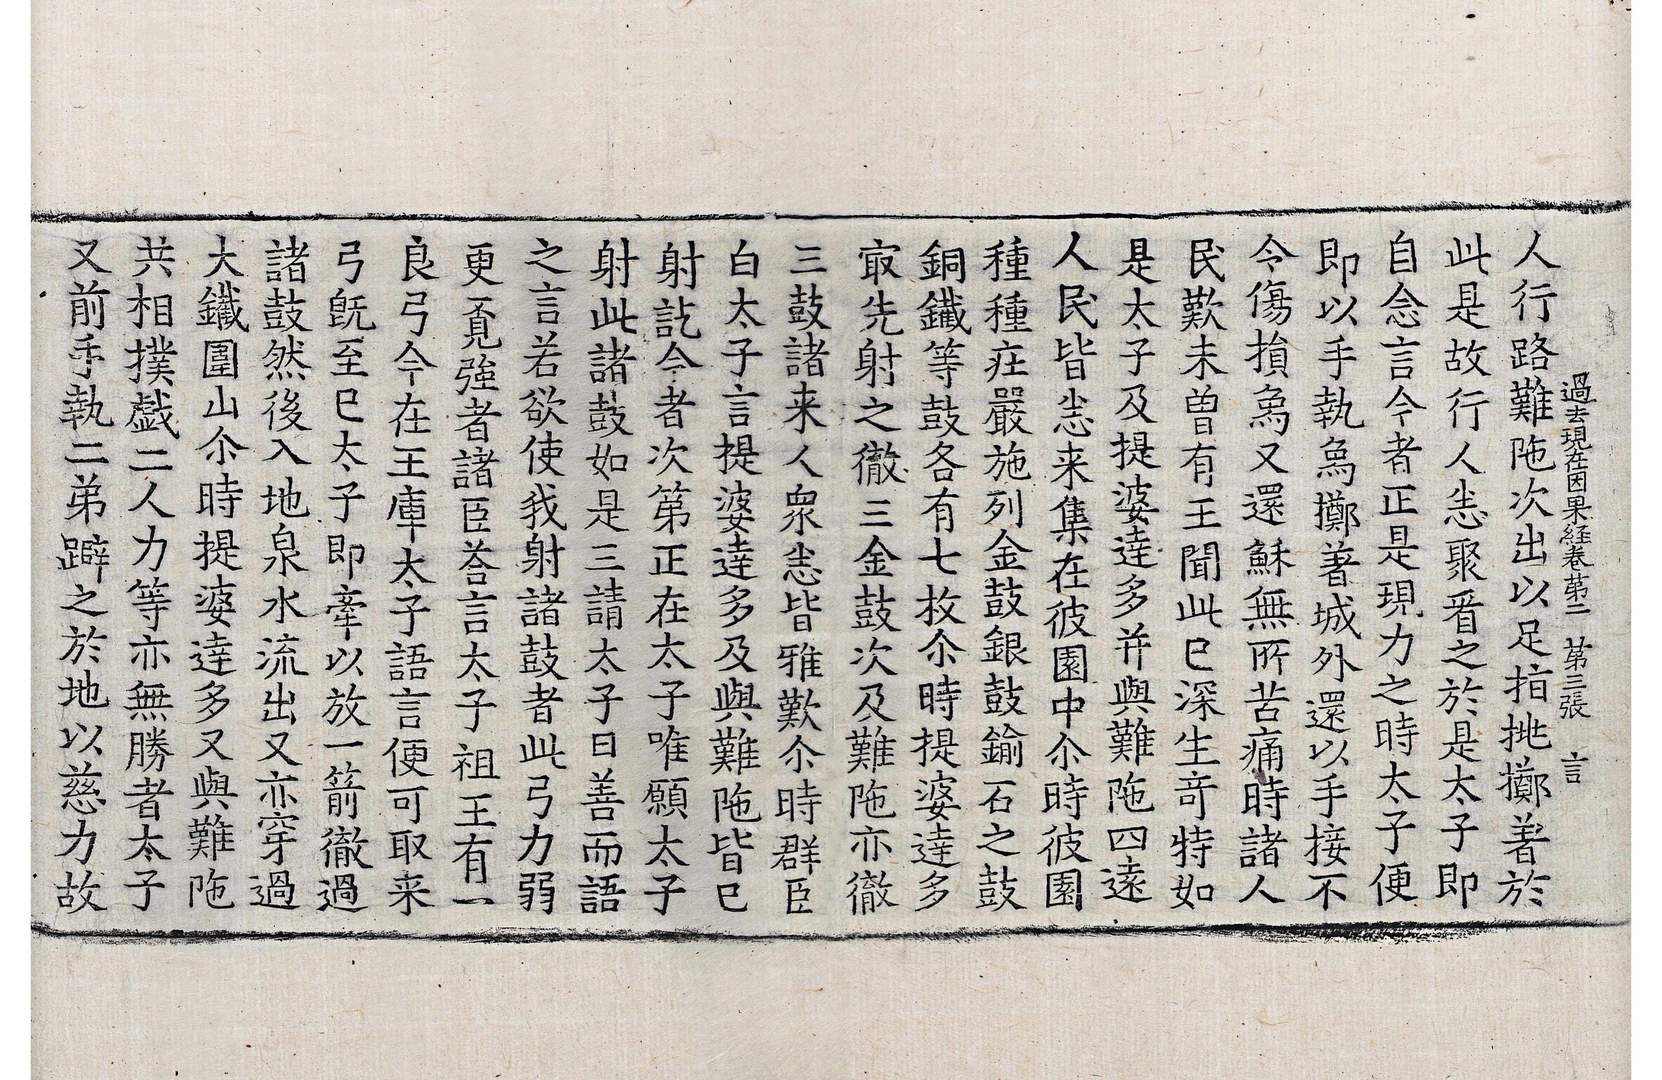 過去現在因果経卷第二　第三張　言
人行路難陁次出以足指挑擲著於
此是故行人恚聚看之於是太子即
自念言今者正是現力之時太子便
即以手執烏擲著城外還以手接不
令傷損烏又還穌無所苦痛時諸人
民歎未曾有王聞此已深生竒特如
是太子及提婆達多并與難陁四遠
人民皆恚来集在彼園中尒時彼園
種種莊嚴施列金鼓銀鼓鍮石之鼓
銅鐵等鼓各有七枚尒時提婆達多
冣先射之徹三金鼓次及難陁亦徹
三鼓諸来人衆恚皆雅歎尒時群臣
白太子言提婆達多及與難陁皆已
射訖今者次第正在太子唯願太子
射此諸鼓如是三請太子曰善而語
之言若欲使我射諸鼓者此弓力弱
更覔強者諸臣荅言太子祖王有一
良弓今在王庫太子語言便可取来
弓旣至已太子即牽以放一箭徹過
諸鼓然後入地泉水流出又亦穿過
大鐵圍山尒時提婆達多又與難陁
共相撲戯二人力等亦無勝者太子
又前手執二弟躃之於地以慈力故